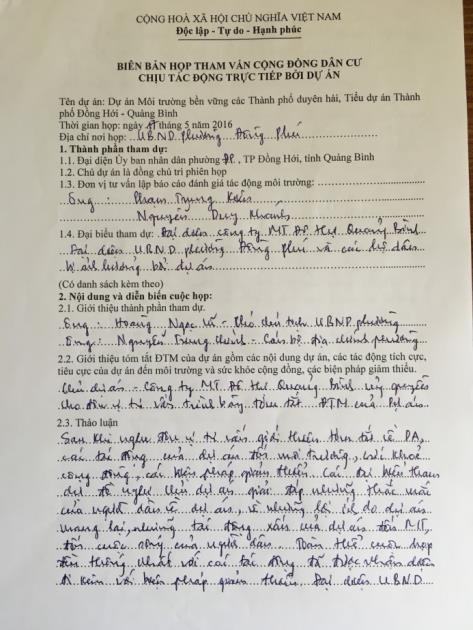 CỘNG HOÀ XÃ HỘI CHỦ NGHĨA VIỆT NAM
Độc lập - Tự do - Hạnh phúc
BIÊN BẢN HỌP THAM VẤN CỘNG ĐỒNG DÂN CƯ
CHỊU TÁC ĐỘNG TRỰC TIẾP BỞI DỰ ÁN
Tên dự án: Dự án Môi trường bền vững các Thành phố duyên hải, Tiểu dự án Thành
phố Đồng Hới - Quảng Bình
Thời gian họp: ngày tháng 5 năm 2016
Địa chỉ nơi họp: UBND phường Đồng Phú
1. Thành phần tham dự:
1.1. Đại diện Ủy ban nhân dân phường ĐP, TP Đồng Hới, tỉnh Quảng Bình
1.2. Chủ dự án là đồng chủ trì phiên họp
1.3. Đơn vị tư vấn lập báo cáo đánh giá tác động môi trường:
Ông: Phạm Trung Kiên
Nguyễn Duy Khánh
1.4. Đại biểu tham dự: Đại diện công ty MT ĐT Quảng Bình
Đại diện UBND phường Đồng Phú và các hộ dân
bị ảnh hưởng bởi dự án
(Có danh sách kèm theo)
2. Nội dung và diễn biến cuộc họp:
2.1. Giới thiệu thành phần tham dự.
Ông: Hoàng Ngọc - Phó chủ tịch UBND phường
Ông: Nguyễn Trung - Cán bộ địa chính phường
2.2. Giới thiệu tóm tắt ĐTM của dự án gồm các nội dung dự án, các tác động tích cực,
tiêu cực của dự án đến môi trường và sức khỏe cộng đồng, các biện pháp giảm thiểu.
Chủ dự án - Công ty MT ĐT Quảng Bình ủy quyền
cho đơn vị tư vấn trình bày tóm tắt ĐTM của Dự án.
2.3. Thảo luận
Sau khi nghe đơn vị tư vấn giới thiệu tóm tắt về DA,
các tác động của dự án tới môi trường, sức khoẻ
cộng đồng, các biện pháp giảm thiểu. Các đại biểu tham
dự đề nghị Chủ dự án giải đáp những thắc mắc
của người dân về dự án, về những lợi ích do dự án
mang lại, những tác động xấu của dự án đến MT,
đến cuộc sống của người dân. Toàn thể cuộc họp
đều thống nhất với các tác động đã được nhận diện
đi kèm với biện pháp giảm thiểu. Đại diện UBND